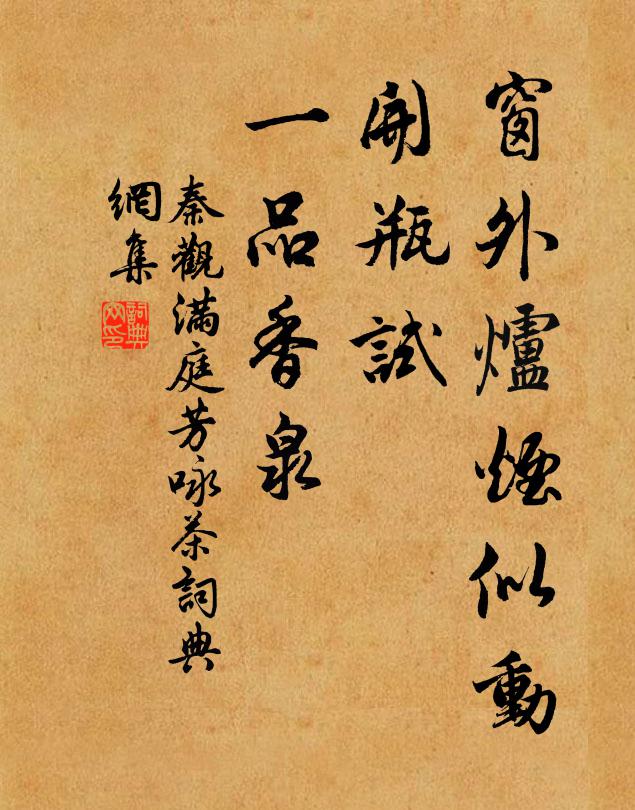 窗外爐煙似動
開瓶試
一品香泉
秦觀滿庭芳咏茶詞典
網集
詞典
文印